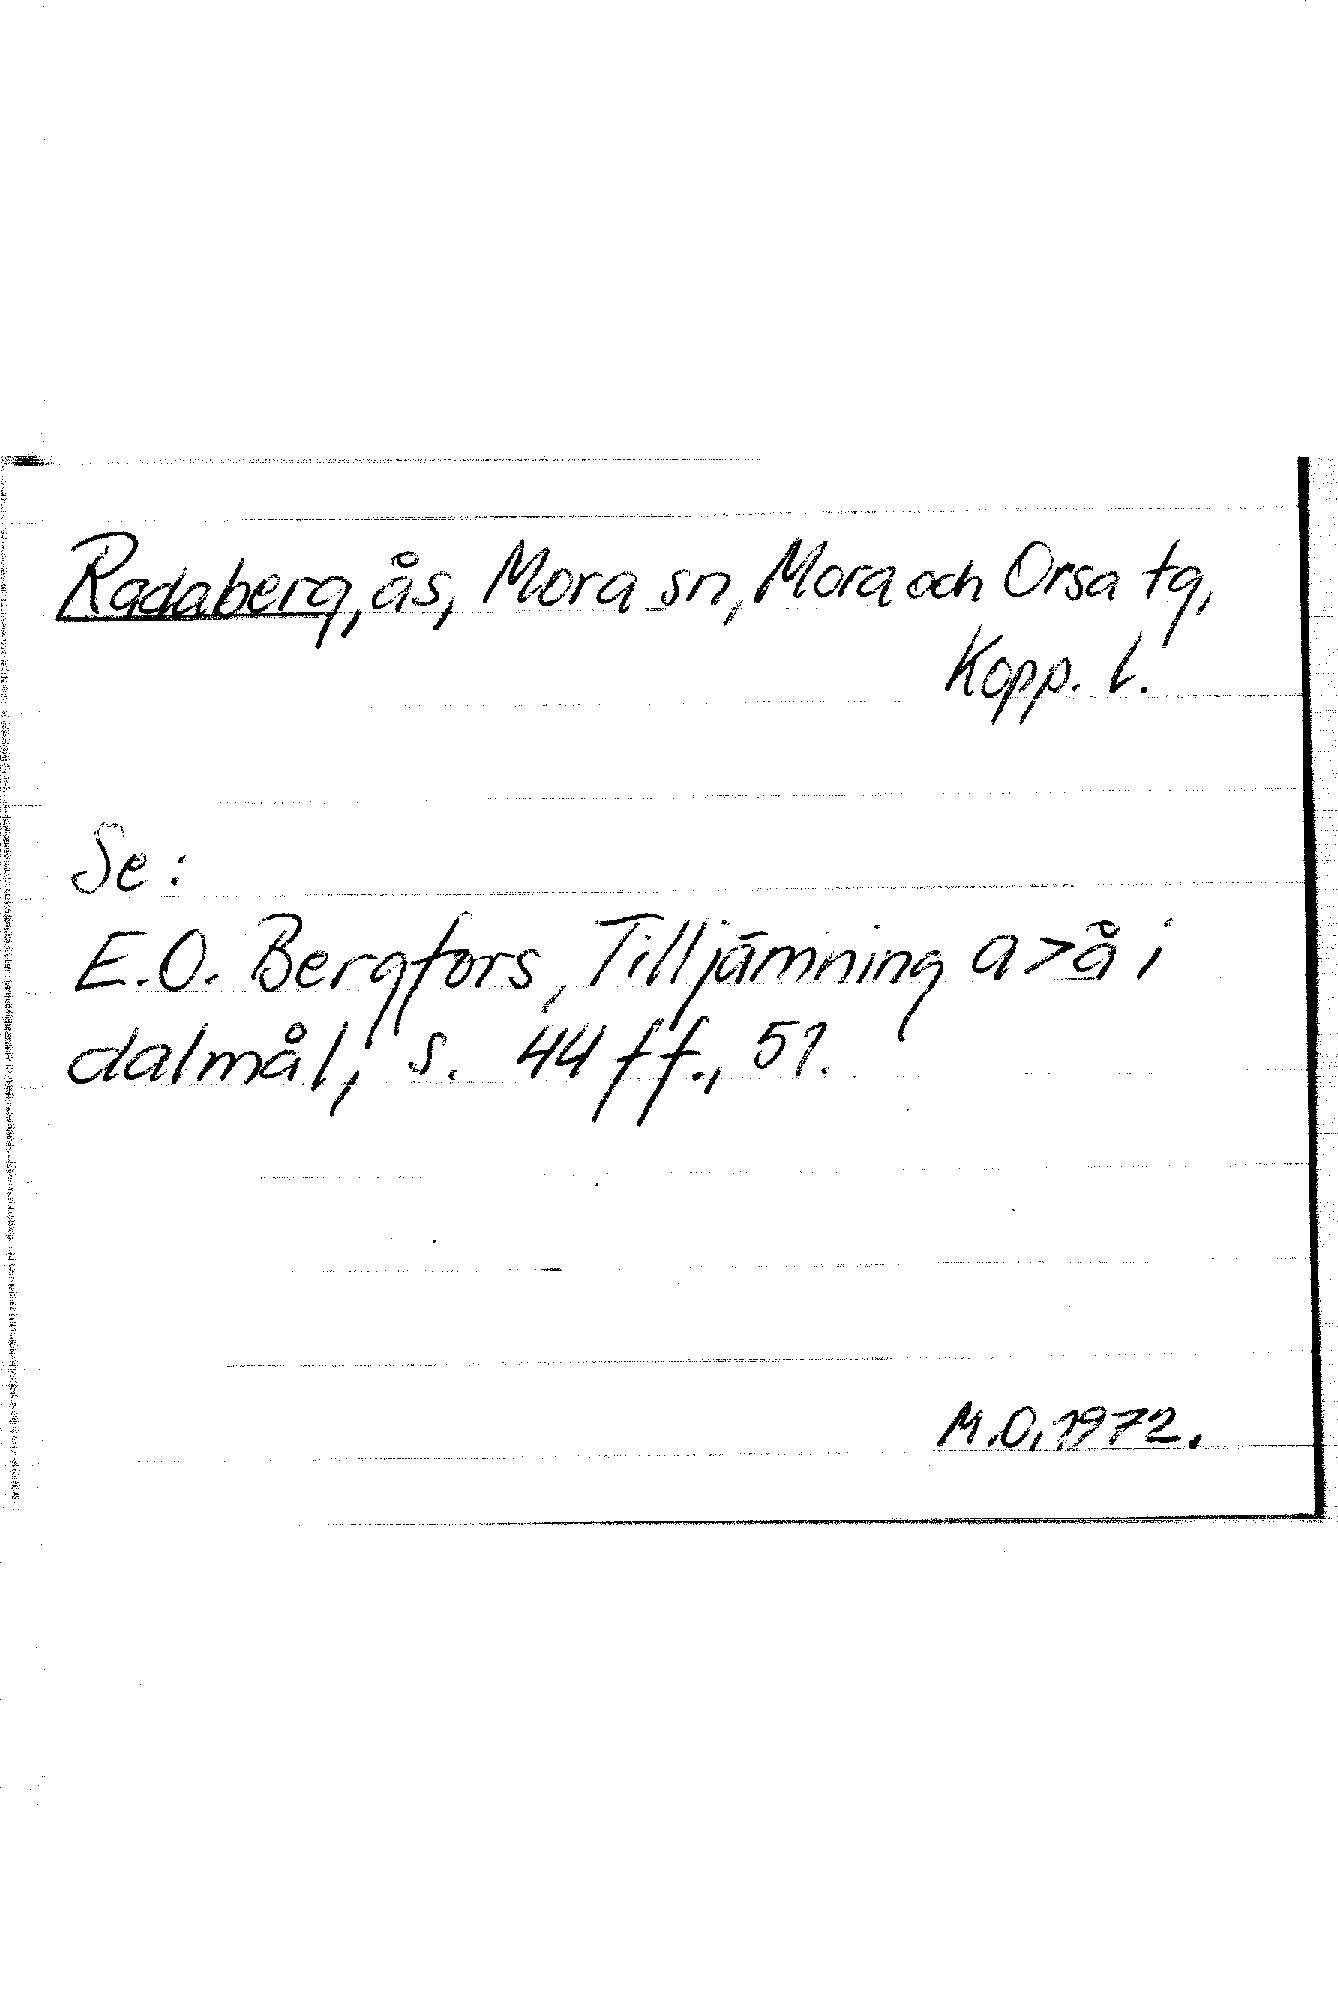 Radaberg, ås, Mora sn, Mora och Orsa tg,
Kopp. l.
Se:
E.O. Bergfors, Tilljämning a>å i
dalmål, s. 44 ff., 51.
M.O. 1972.